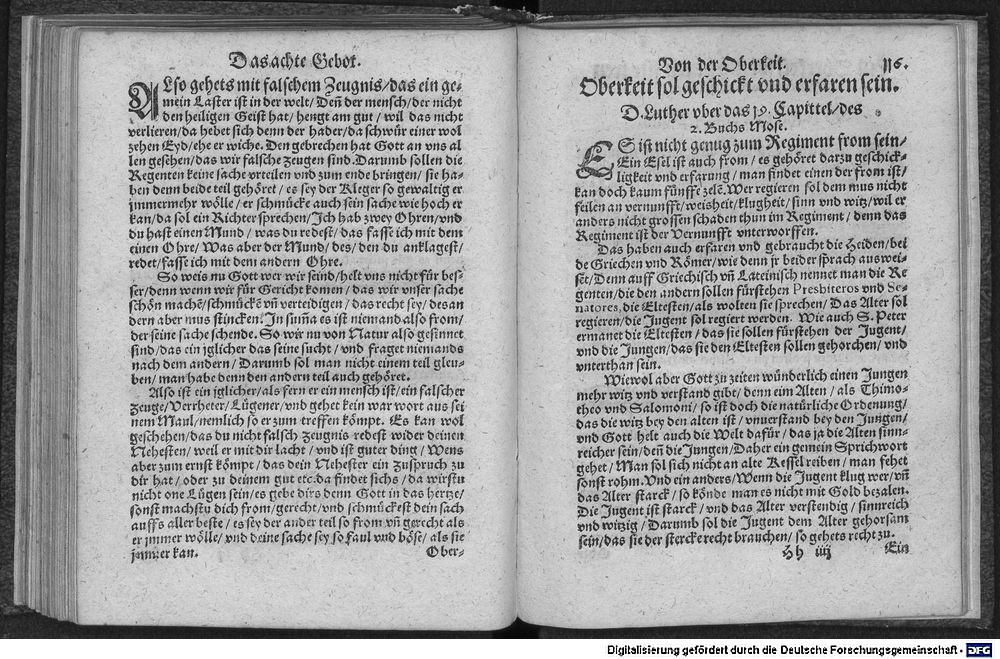 Das achte Gebot.
ALso gehets mit falschem Zeugnis/das ein ge-
mein Laster ist in der welt/Deñ der mensch/der nicht
den heiligen Geist hat/hengt am gut/wil das nicht
verlieren/da hebet sich denn der hader/da schwür einer wol
zehen Eyd/ehe er wiche. Den gebrechen hat Gott an vns al
len gesehen/das wir falsche zeugen sind. Darumb sollen die
Regenten keine sache vrteilen vnd zum ende bringen/sie ha-
ben denn beide teil gehöret/es sey der Kleger so gewaltig er
jmmermehr wölle/er schmücke auch sein sache wie hoch er
kan/da sol ein Richter sprechen/Ich hab zwey Ohren/vnd
du hast einen Mund/was du redest/das fasse ich mit dem
einen Ohre/Was aber der Mund/des/den du anklagest/
redet/fasse ich mit dem andern Ohre.
So weis nu Gott wer wir seind/helt vns nicht für bes-
ser/denn wenn wir für Gericht komen/das wir vnser sache
schön machẽ/schmückẽ vñ verteidigen/das recht sey/des an
dern aber mus stincken. In sum̃a es ist niemand also from/
der seine sache schende. So wir nu von Natur also gesinnet
sind/das ein jglicher das seine sucht/vnd fraget niemands
nach dem andern/Darumb sol man nicht einem teil gleu-
ben/man habe denn den andern teil auch gehöret.
Also ist ein jglicher/als fern er ein mensch ist/ein falscher
Zeuge/Verrheter/Lügener/vnd gehet kein war wort aus sei
nem Maul/nemlich so er zum treffen kömpt. Es kan wol
geschehen/das du nicht falsch Zeugnis redest wider deinen
Nehesten/weil er mit dir lacht/vnd ist guter ding/Wens
aber zum ernst kömpt/das dein Nehester ein zuspruch zu
dir hat/oder zu deinem gut etc. da findet sichs/da wirstu
nicht one Lügen sein/es gebe dirs denn Gott in das hertze/
sonst machstu dich from/gerecht/vnd schmückest dein sach
auffs aller beste/es sey der ander teil so from vñ gerecht als
er jmmer wölle/vnd deine sache sey so faul vnd böse/als sie
jmmer kan.
Ober-
Von der Oberkeit.
116.
Oberkeit sol geschickt vnd erfaren sein.
D. Luther vber das 19. Capittel/des
2. Buchs Mose.
ES ist nicht genug zum Regiment from sein/
Ein Esel ist auch from/es gehöret darzu geschick-
ligkeit vnd erfarung/man findet einen der from ist/
kan doch kaum fünffe zelẽ. Wer regieren sol dem mus nicht
feilen an vernunfft/weisheit/klugheit/sinn vnd witz/wil er
anders nicht grossen schaden thun im Regiment/denn das
Regiment ist der Vernunfft vnterworffen.
Das haben auch erfaren vnd gebraucht die Heiden/bei
de Griechen vnd Römer/wie denn jr beider sprach auswei-
set/Denn auff Griechisch vñ Lateinisch nennet man die Re
genten/die den andern sollen fürstehen Presbiteros vnd Se-
natores, die Eltesten/als wolten sie sprechen/Das Alter sol
regieren/die Jugent sol regiert werden. Wie auch S. Peter
ermanet die Eltesten/das sie sollen fürstehen der Jugent/
vnd die Jungen/das sie den Eltesten sollen gehorchen/vnd
vnterthan sein.
Wiewol aber Gott zu zeiten wünderlich einen Jungen
mehr witz vnd verstand gibt/denn eim Alten/als Thimo-
theo vnd Salomoni/so ist doch die natürliche Ordenung/
das die witz bey den alten ist/vnuerstand bey den Jungen/
vnd Gott helt auch die Welt dafür/das ja die Alten sinn-
reicher sein/deñ die Jungen/Daher ein gemein Sprichwort
gehet/Man sol sich nicht an alte Kessel reiben/man fehet
sonst rohm. Vnd ein anders/Wenn die Jugent klug wer/vñ
das Alter starck/so könde man es nicht mit Gold bezalen.
Die Jugent ist starck/vnd das Alter verstendig/sinnreich
vnd witzig/Darumb sol die Jugent dem Alter gehorsam
sein/das sie der stercke recht brauchen/so gehets recht zu.
Hh iiij
Ein
Digitalisierung gefördert durch die Deutsche Forschungsgemeinschaft - DFG